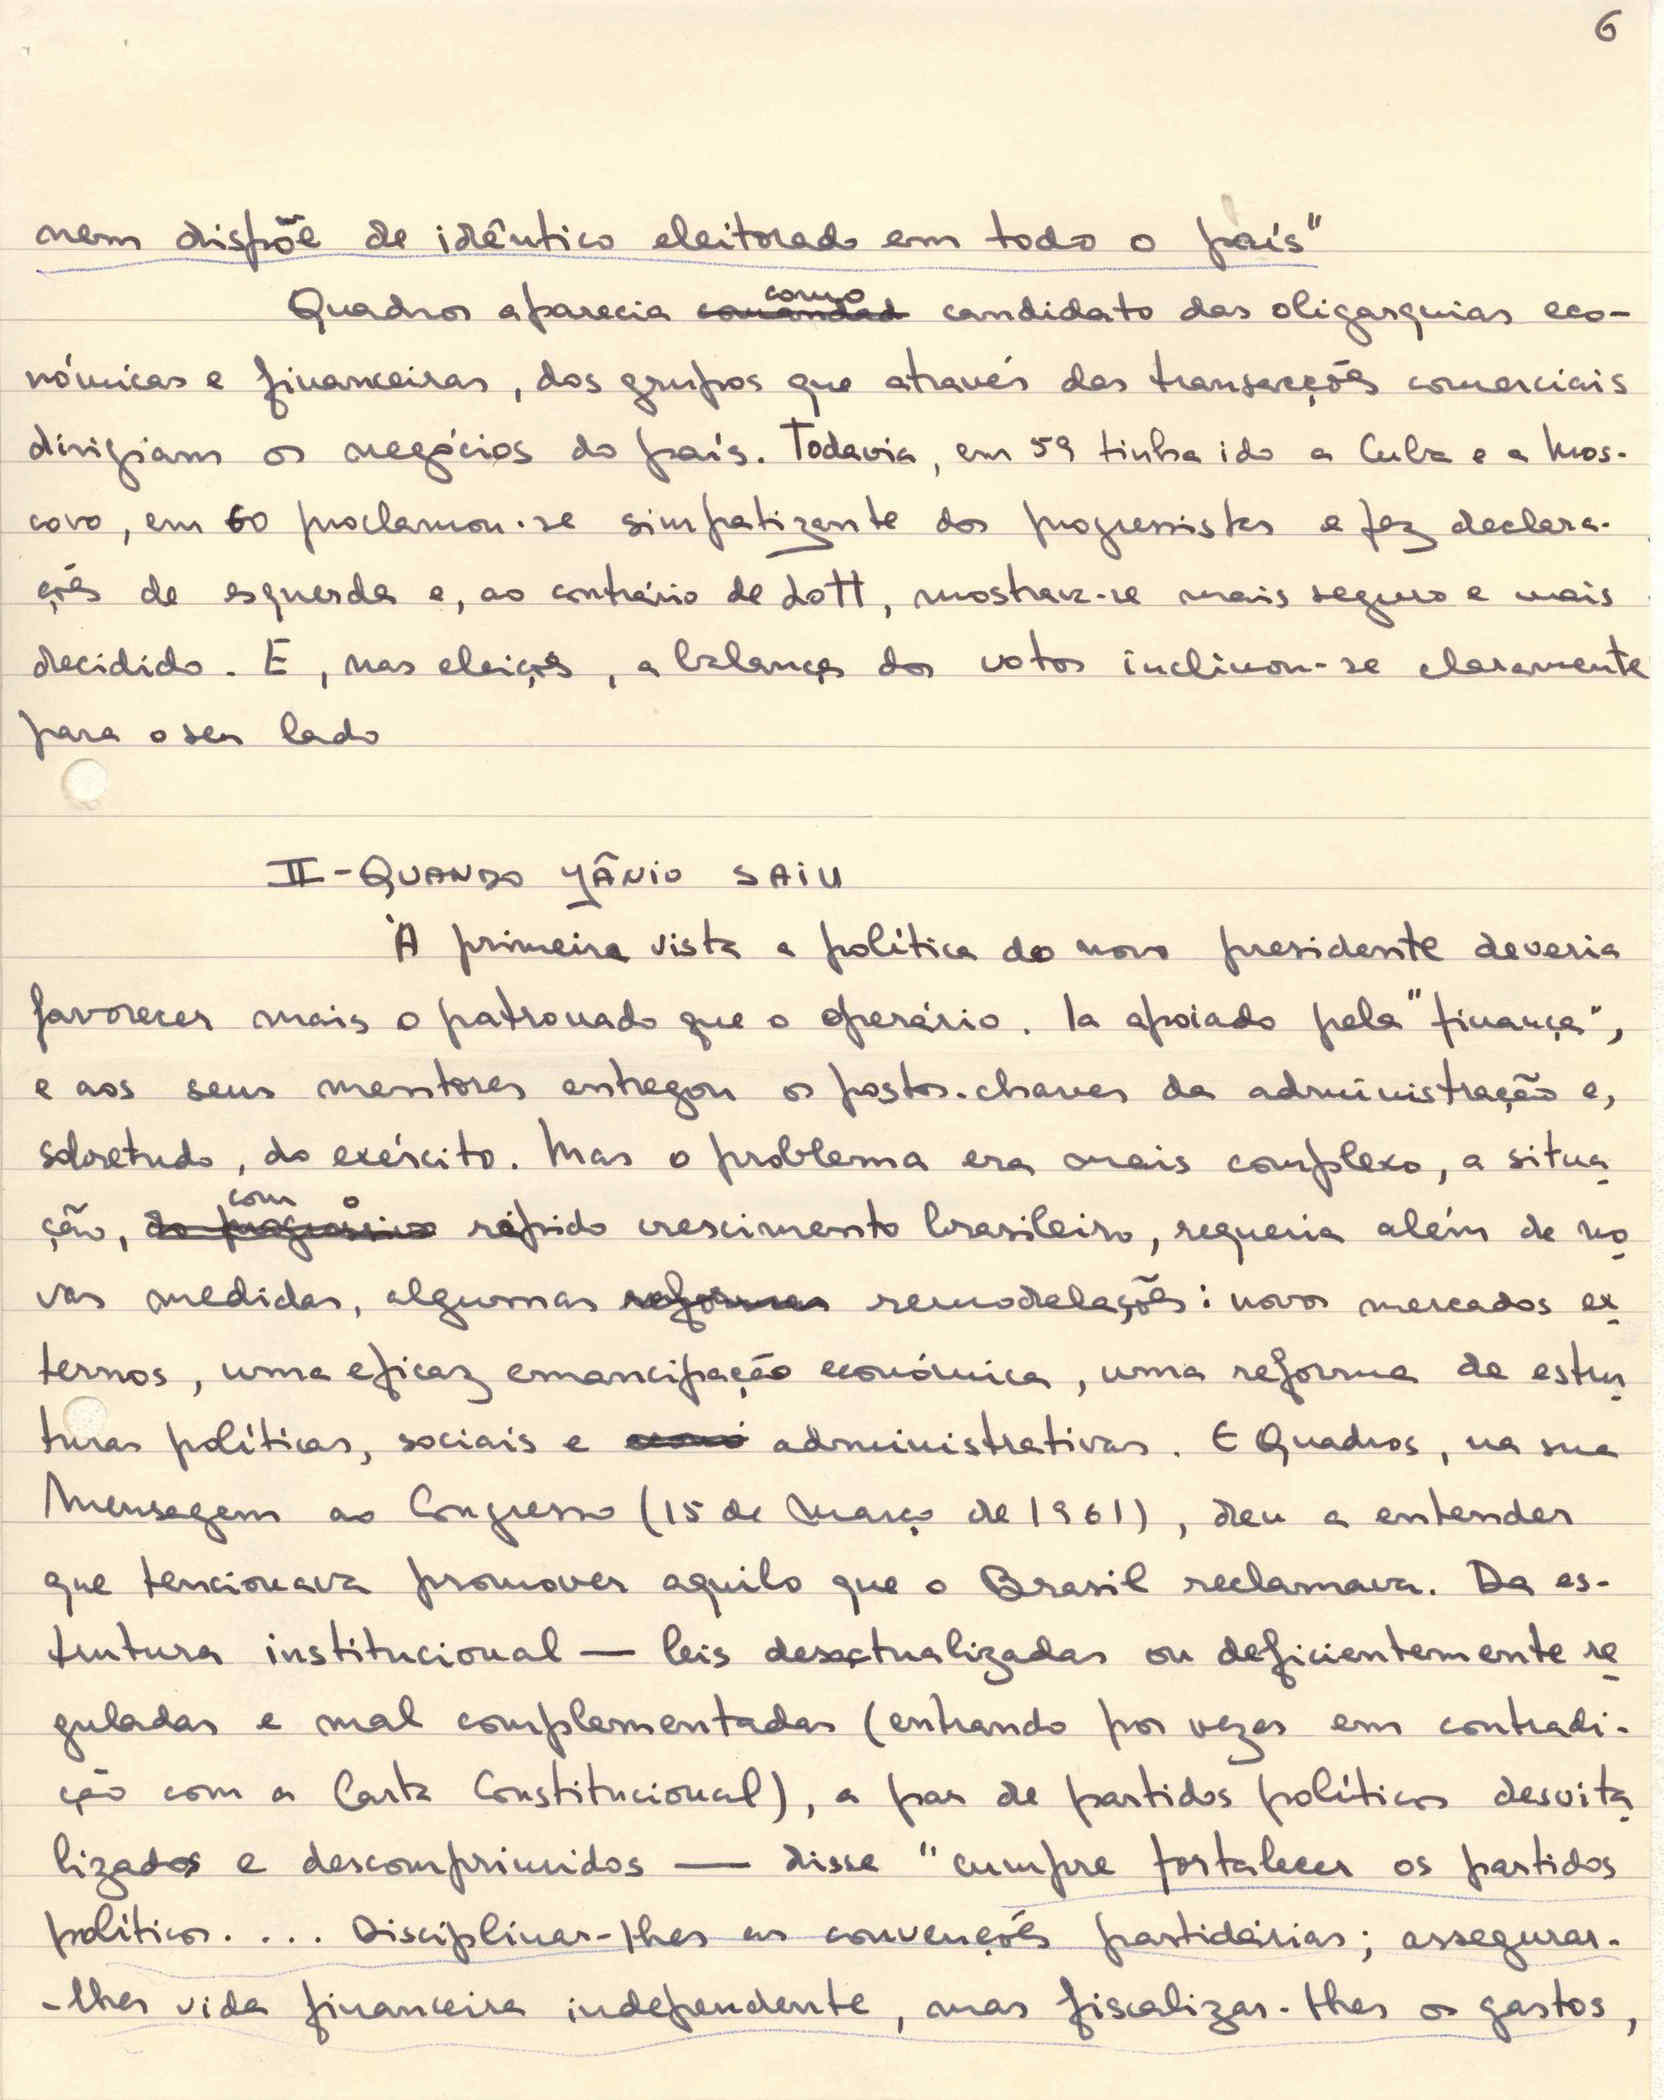 6
nem dispõe de idêntico eleitorado em todo o país"
Quadros aparecia como candidato das oligarquias eco-
nómicas e financeiras, dos grupos que através das transacções comerciais
dirigiam os negócios do país. Todavia, em 59 tinha ido a Cuba e a Mos-
covo, em 60 proclamou-se simpatizante dos progressistas e fez declara-
ções de esquerda e, ao contrário de Lott, mostrara-se mais seguro e mais
decidido. E, nas eleições, a balança dos votos inclinou-se claramente
para o seu lado
II - QUANDO JÂNIO SAIU
À primeira vista a política do novo presidente deveria
favorecer mais o patronado que o operário. Ia apoiado pela "finança",
e aos seus mentores entregou os postos-chaves da administração e,
sobretudo, do exército. Mas o problema era mais complexo, a situa
ção, com o rápido crescimento brasileiro, requeria além de no
vas medidas, algumas reformas remodelações: novos mercados ex
ternos, uma eficaz emancipação económica, uma reforma de estru
turas políticas, sociais e administrativas. E Quadros, na sua
Mensagem ao Congresso (15 de Março de 1961), deu a entender
que tencionava promover aquilo que o Brasil reclamava. Da es-
trutura institucional — leis desactualizadas ou deficientemente re
guladas e mal complementadas (entrando por vezes em contradi-
ção com a Carta Constitucional), a par de partidos políticos desvita
lizados e descomprimidos — disse "cumpre fortalecer os partidos
políticos. ... Disciplinar-lhes as convenções partidárias; assegurar-
-lhes vida financeira independente, mas fiscalizar-lhes os gastos,